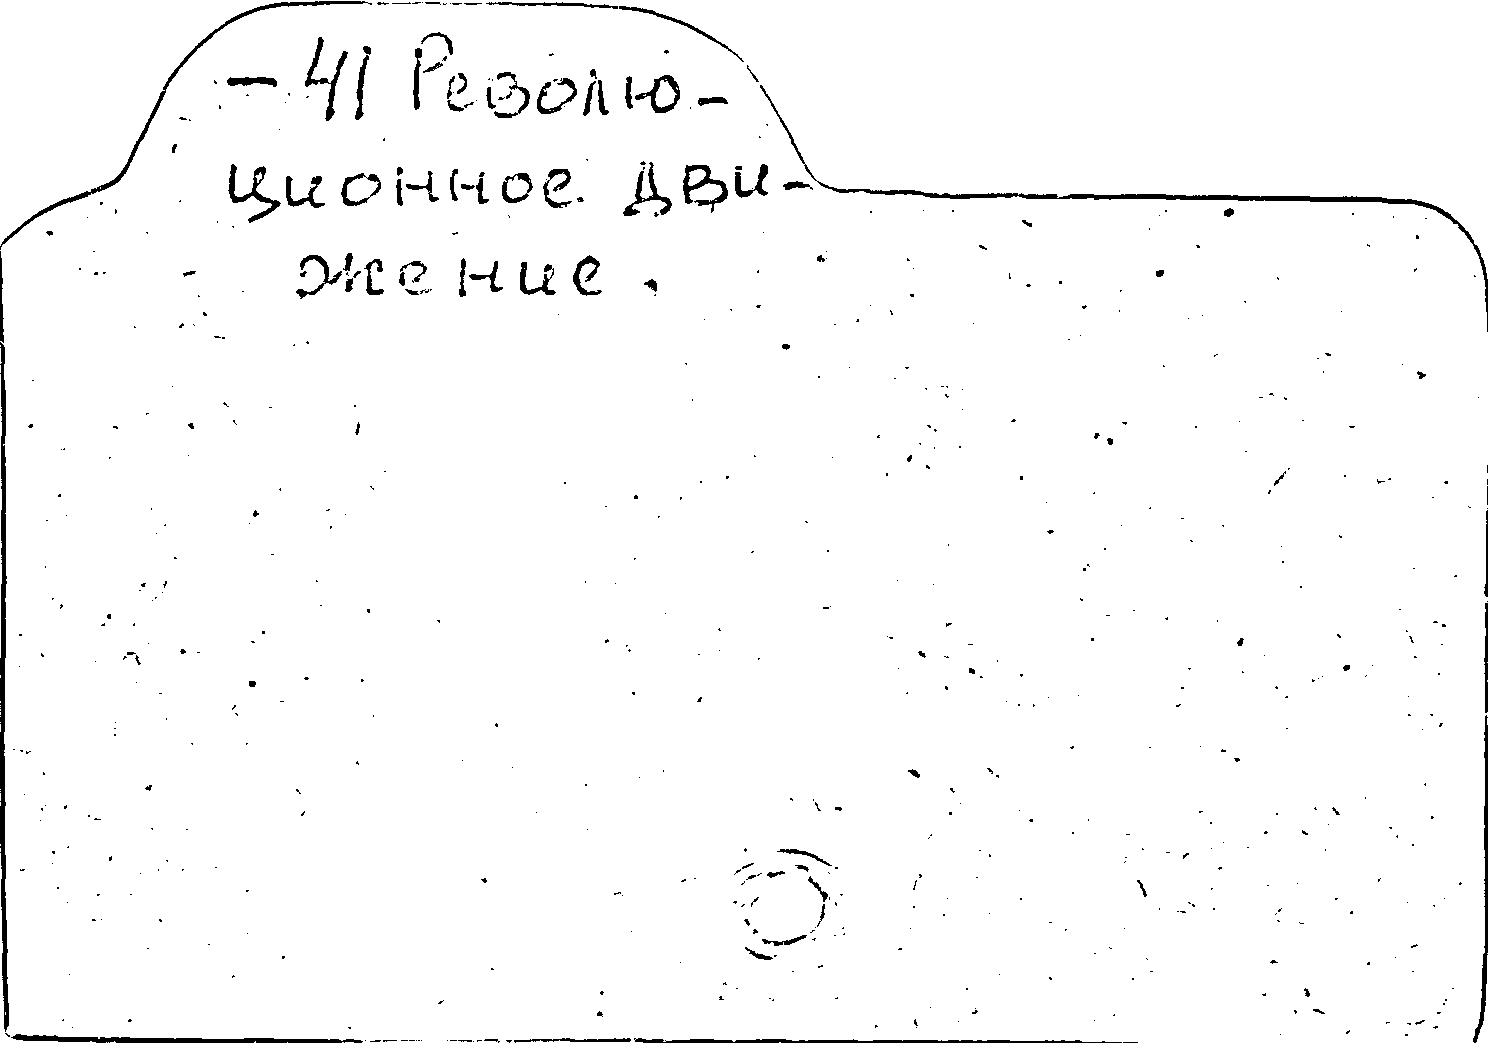 - 41 Револю-
ционное дви-
жение.